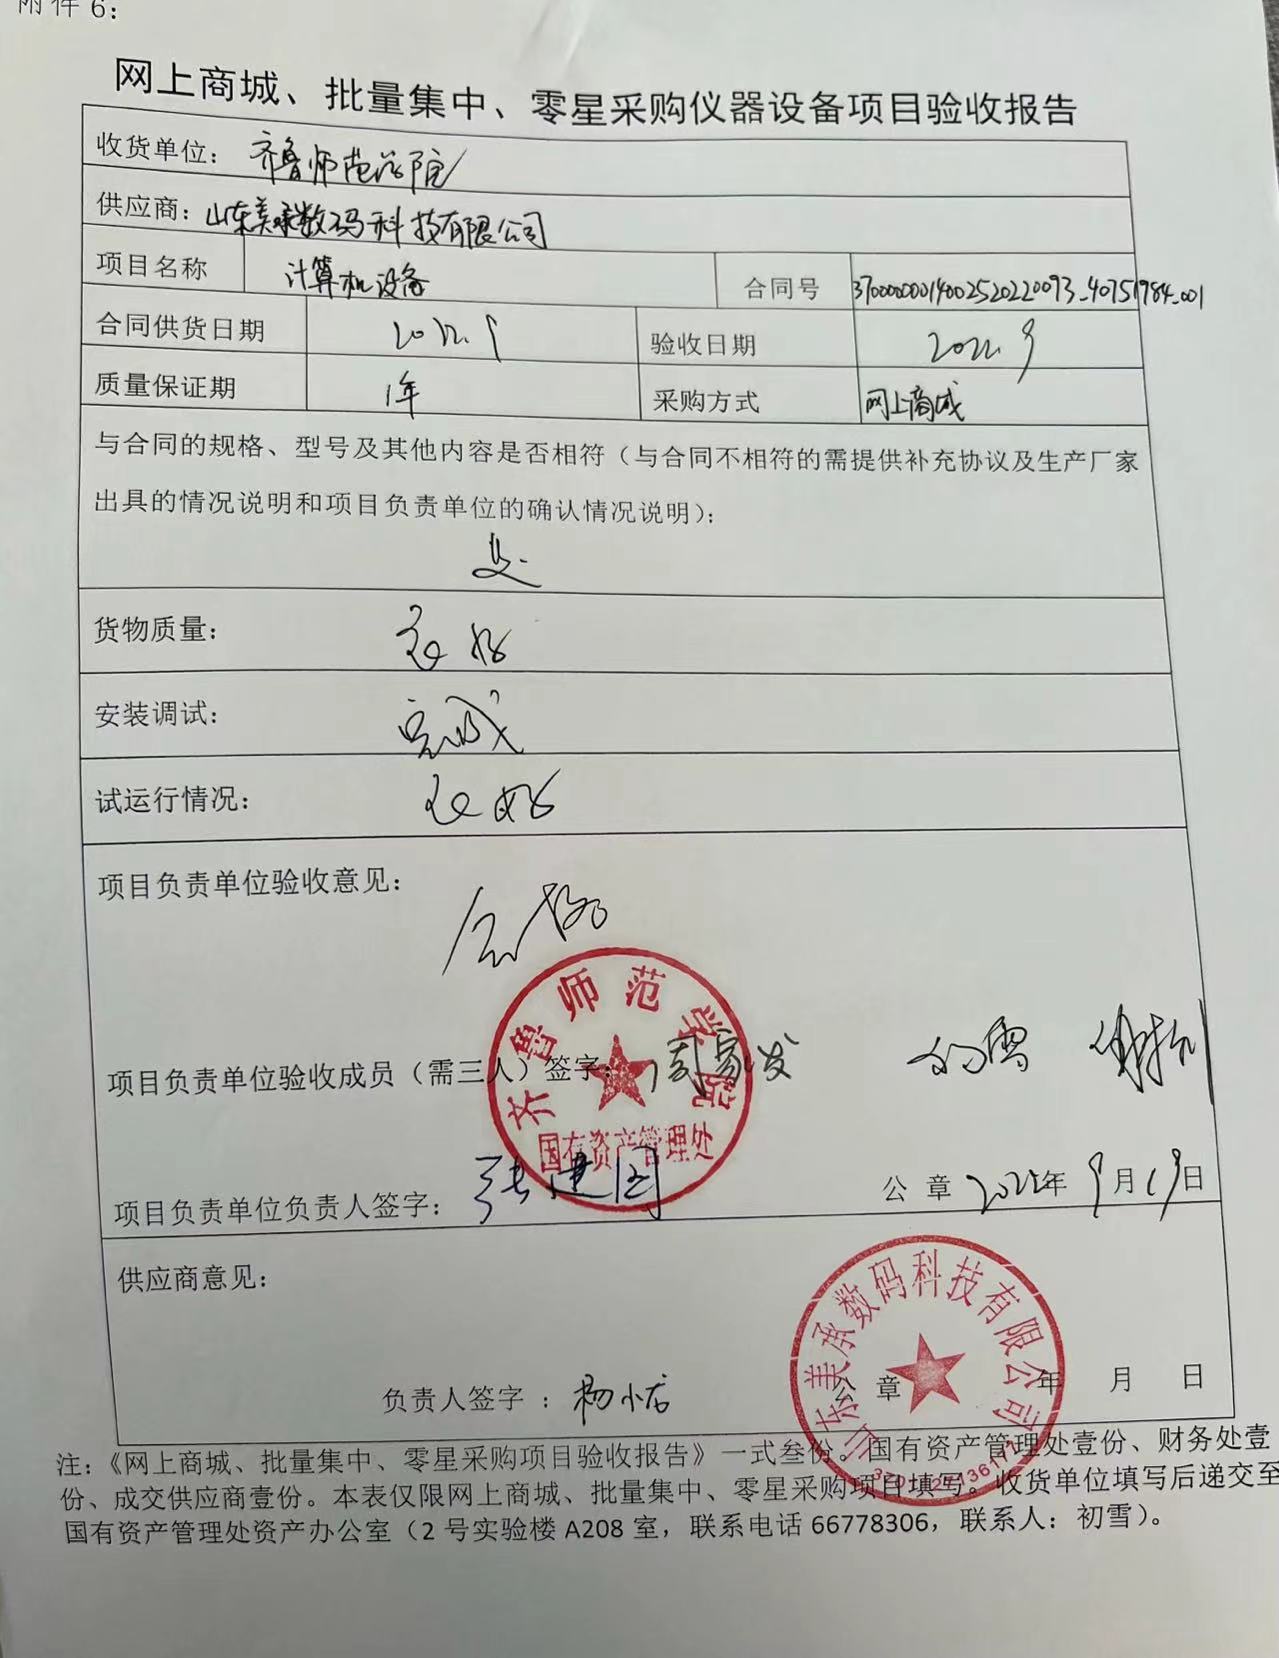 附件6：
网上商城、批量集中、零星采购仪器设备项目验收报告
收货单位： 齐鲁师范学院
供应商：山东美承数码科技有限公司
项目名称 计算机设备 合同号 37000000014002520220093_40751984_001
合同供货日期 2022.9 验收日期 2022.9
质量保证期 1年 采购方式 网上商城
与合同的规格、型号及其他内容是否相符（与合同不相符的需提供补充协议及生产厂家
出具的情况说明和项目负责单位的确认情况说明）：
是
货物质量： 良好
安装调试： 完成
试运行情况： 良好
项目负责单位验收意见：
合格
齐鲁师范学院
项目负责单位验收成员（需三人）签字： 周家发
国有资产管理处
项目负责单位负责人签字： 张建国 公 章 2022年 9月19日
供应商意见：
山东美承数码科技有限公司
负责人签字 ： 杨小店 公 章 年 月 日
注：《网上商城、批量集中、零星采购项目验收报告》一式叁份。国有资产管理处壹份、财务处壹
份、成交供应商壹份。本表仅限网上商城、批量集中、零星采购项目填写。收货单位填写后递交至
国有资产管理处资产办公室（2 号实验楼 A208 室，联系电话 66778306，联系人：初雪）。